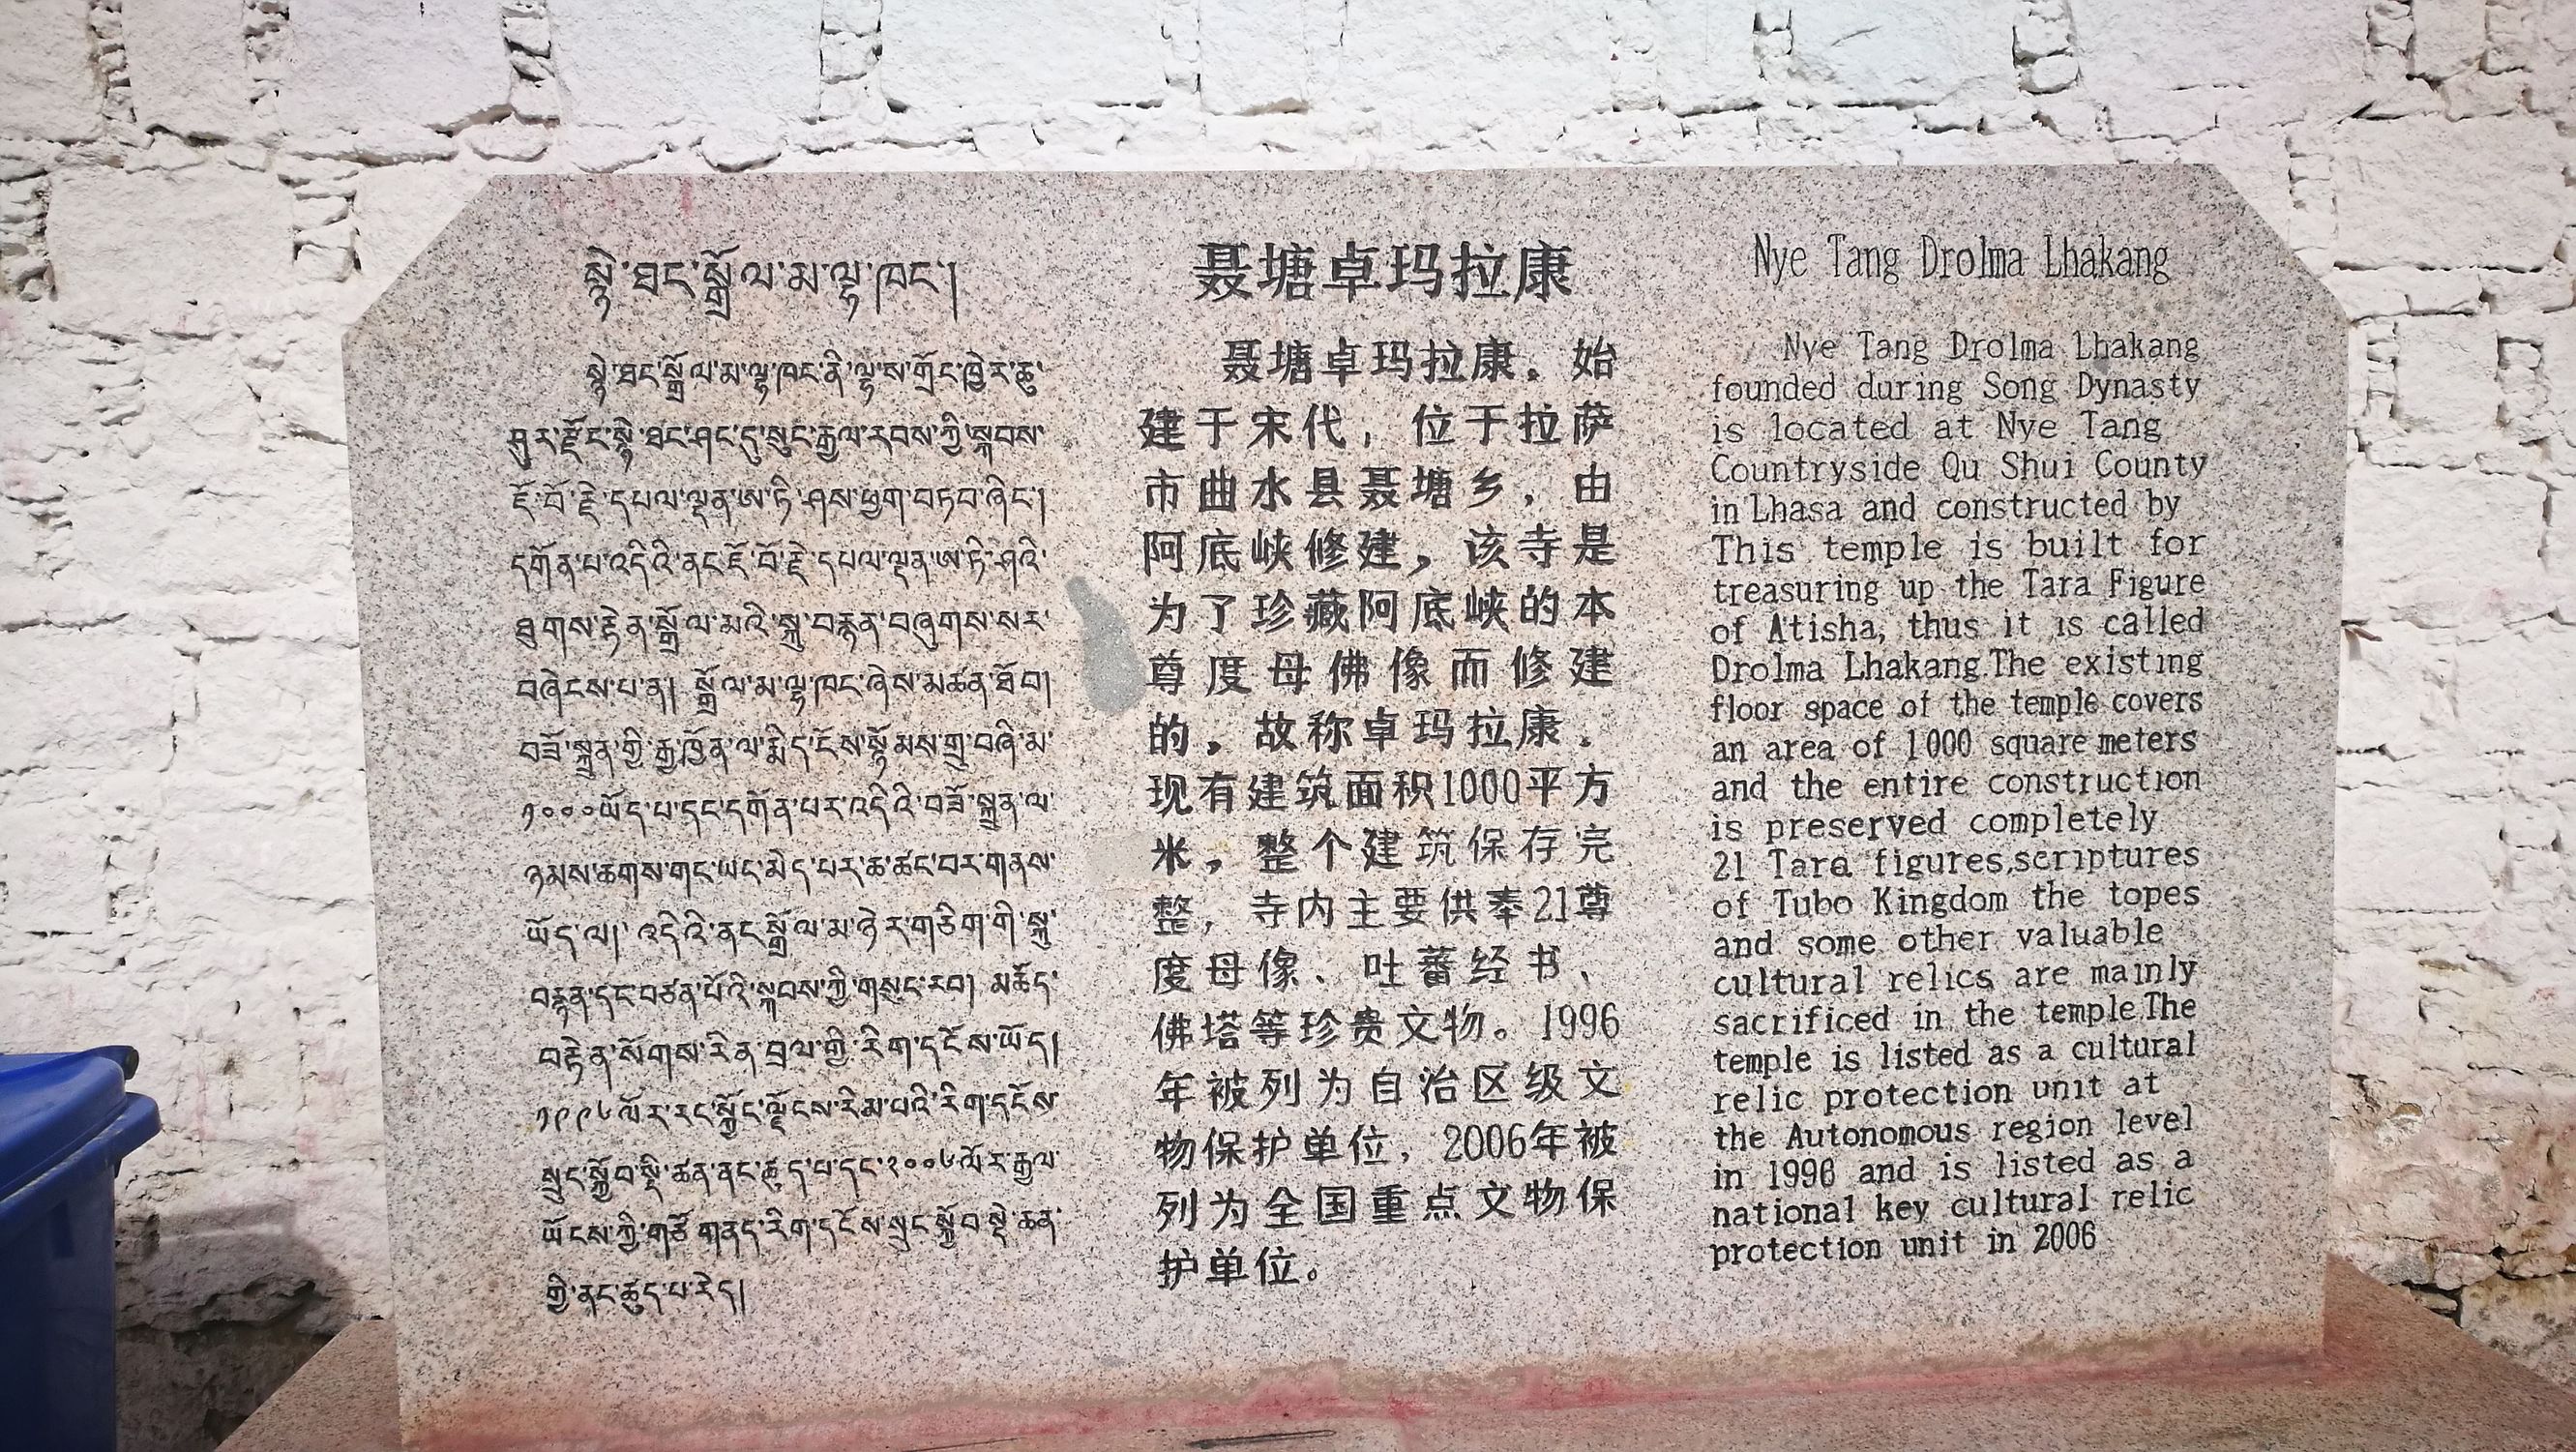 སྙེ་ཐང་སྒྲོལ་མ་ལྷ་ཁང་།
སྙེ་ཐང་སྒྲོལ་མ་ལྷ་ཁང་ནི་ལྷ་ས་གྲོང་ཁྱེར་ཆུ་
ཤུར་རྫོང་སྙེ་ཐང་ཤང་དུ་སུང་རྒྱལ་རབས་ཀྱི་སྐབས་
ཇོ་བོ་རྗེ་དཔལ་ལྡན་ཨ་ཏི་ཤས་ཕྱག་བཏབ་ཞིང་།
དགོན་པ་འདིའི་ནང་ཇོ་བོ་རྗེ་དཔལ་ལྡན་ཨ་ཏི་ཤའི་
ཐུགས་རྟེན་སྒྲོལ་མའི་སྐུ་བརྙན་བཞུགས་སར་
བཞེངས་པ་ན། སྒྲོལ་མ་ལྷ་ཁང་ཞེས་མཚན་ཐོབ།
བཟོ་སྐྲུན་གྱི་རྒྱ་ཁྱོན་ལ་རྨིད་ངོས་སྙོམས་གྲུ་བཞི་མ་
༡༠༠༠ཡོད་པ་དང་དགོན་པར་འདིའི་བཟོ་སྐྲུན་ལ་
ཉམས་ཆགས་གང་ཡང་མེད་པར་ཆ་ཚང་བར་གནས་
ཡོད་ལ། འདིའི་ནང་སྒྲོལ་མ་ཉེར་གཅིག་གི་སྐུ་
བརྙན་དང་བཙན་པོའི་སྐབས་ཀྱི་གསུང་རབ། མཆོད་
བརྟེན་སོགས་རིན་བྲལ་གྱི་རིག་དངོས་ཡོད།
༡༩༩༦ལོར་རང་སྐྱོང་ལྗོངས་རིམ་པའི་རིག་དངོས་
སྲུང་སྐྱོབ་སྡེ་ཚན་ནང་ཚུད་པ་དང་༢༠༠༦ལོར་རྒྱལ་
ཡོངས་ཀྱི་གཙོ་གནད་རིག་དངོས་སྲུང་སྐྱོབ་སྡེ་ཚན་
གྱི་ནང་ཚུད་པ་རེད།
聂塘卓玛拉康
聂塘卓玛拉康。始
建于宋代，位于拉萨
市曲水县聂塘乡，由
阿底峡修建，该寺是
为了珍藏阿底峡的本
尊度母佛像而修建
的，故称卓玛拉康。
现有建筑面积1000平方
米，整个建筑保存完
整，寺内主要供奉21尊
度母像、吐蕃经书、
佛塔等珍贵文物。1996
年被列为自治区级文
物保护单位，2006年被
列为全国重点文物保
护单位。
Nye Tang Drolma Lhakang
Nye Tang Drolma Lhakang
founded during Song Dynasty
is located at Nye Tang
Countryside Qu Shui County
in Lhasa and constructed by
This temple is built for
treasuring up the Tara Figure
of Atisha, thus it is called
Drolma Lhakang.The existing
floor space of the temple covers
an area of 1000 square meters
and the entire construction
is preserved completely
21 Tara figures,scriptures
of Tubo Kingdom the topes
and some other valuable
cultural relics are mainly
sacrificed in the temple.The
temple is listed as a cultural
relic protection unit at
the Autonomous region level
in 1996 and is listed as a
national key cultural relic
protection unit in 2006